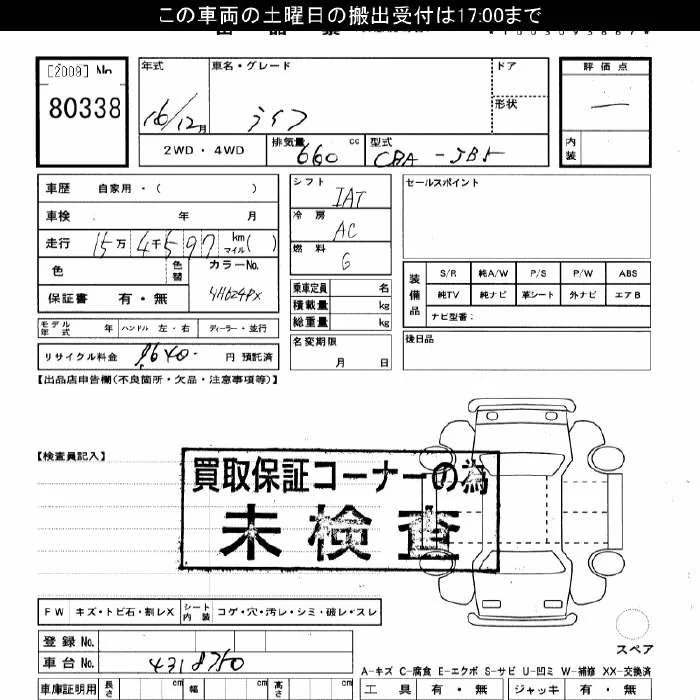 この車両の土曜日の搬出受付は17:00まで
[2009] No
80338
年式 16/12月
車名・グレード ライフ
ドア
形状
評価点 —
内装
2WD・4WD
排気量 660 cc
型式 CBA-JB5
車歴 自家用・( )
車検 年 月
走行 15万4千597 km マイル( )
色 色替 カラーNo. YH624PX
保証書 有・無
シフト IAT
冷房 AC
燃料 G
乗車定員 名
積載量 kg
総重量 kg
名変期限 月 日
セールスポイント
装備品 S/R 純A/W P/S P/W ABS
純TV 純ナビ 革シート 外ナビ エアB
ナビ型番:
後日品
モデル年式 年 ハンドル 左・右 ディーラー・並行
リサイクル料金 9640- 円 預託済
【出品店申告欄(不良箇所・欠品・注意事項等)】
【検査員記入】
買取保証コーナーの為
未検査
FW キズ・トビ石・割レX シート内装 コゲ・穴・汚レ・シミ・破レ・スレ
登録No.
車台No. 4318750
スペア
A-キズ C-腐食 E-エクボ S-サビ U-凹ミ W-補修 XX-交換済
車庫証明用 長さ cm 幅 cm 高さ cm
工具 有・無 ジャッキ 有・無